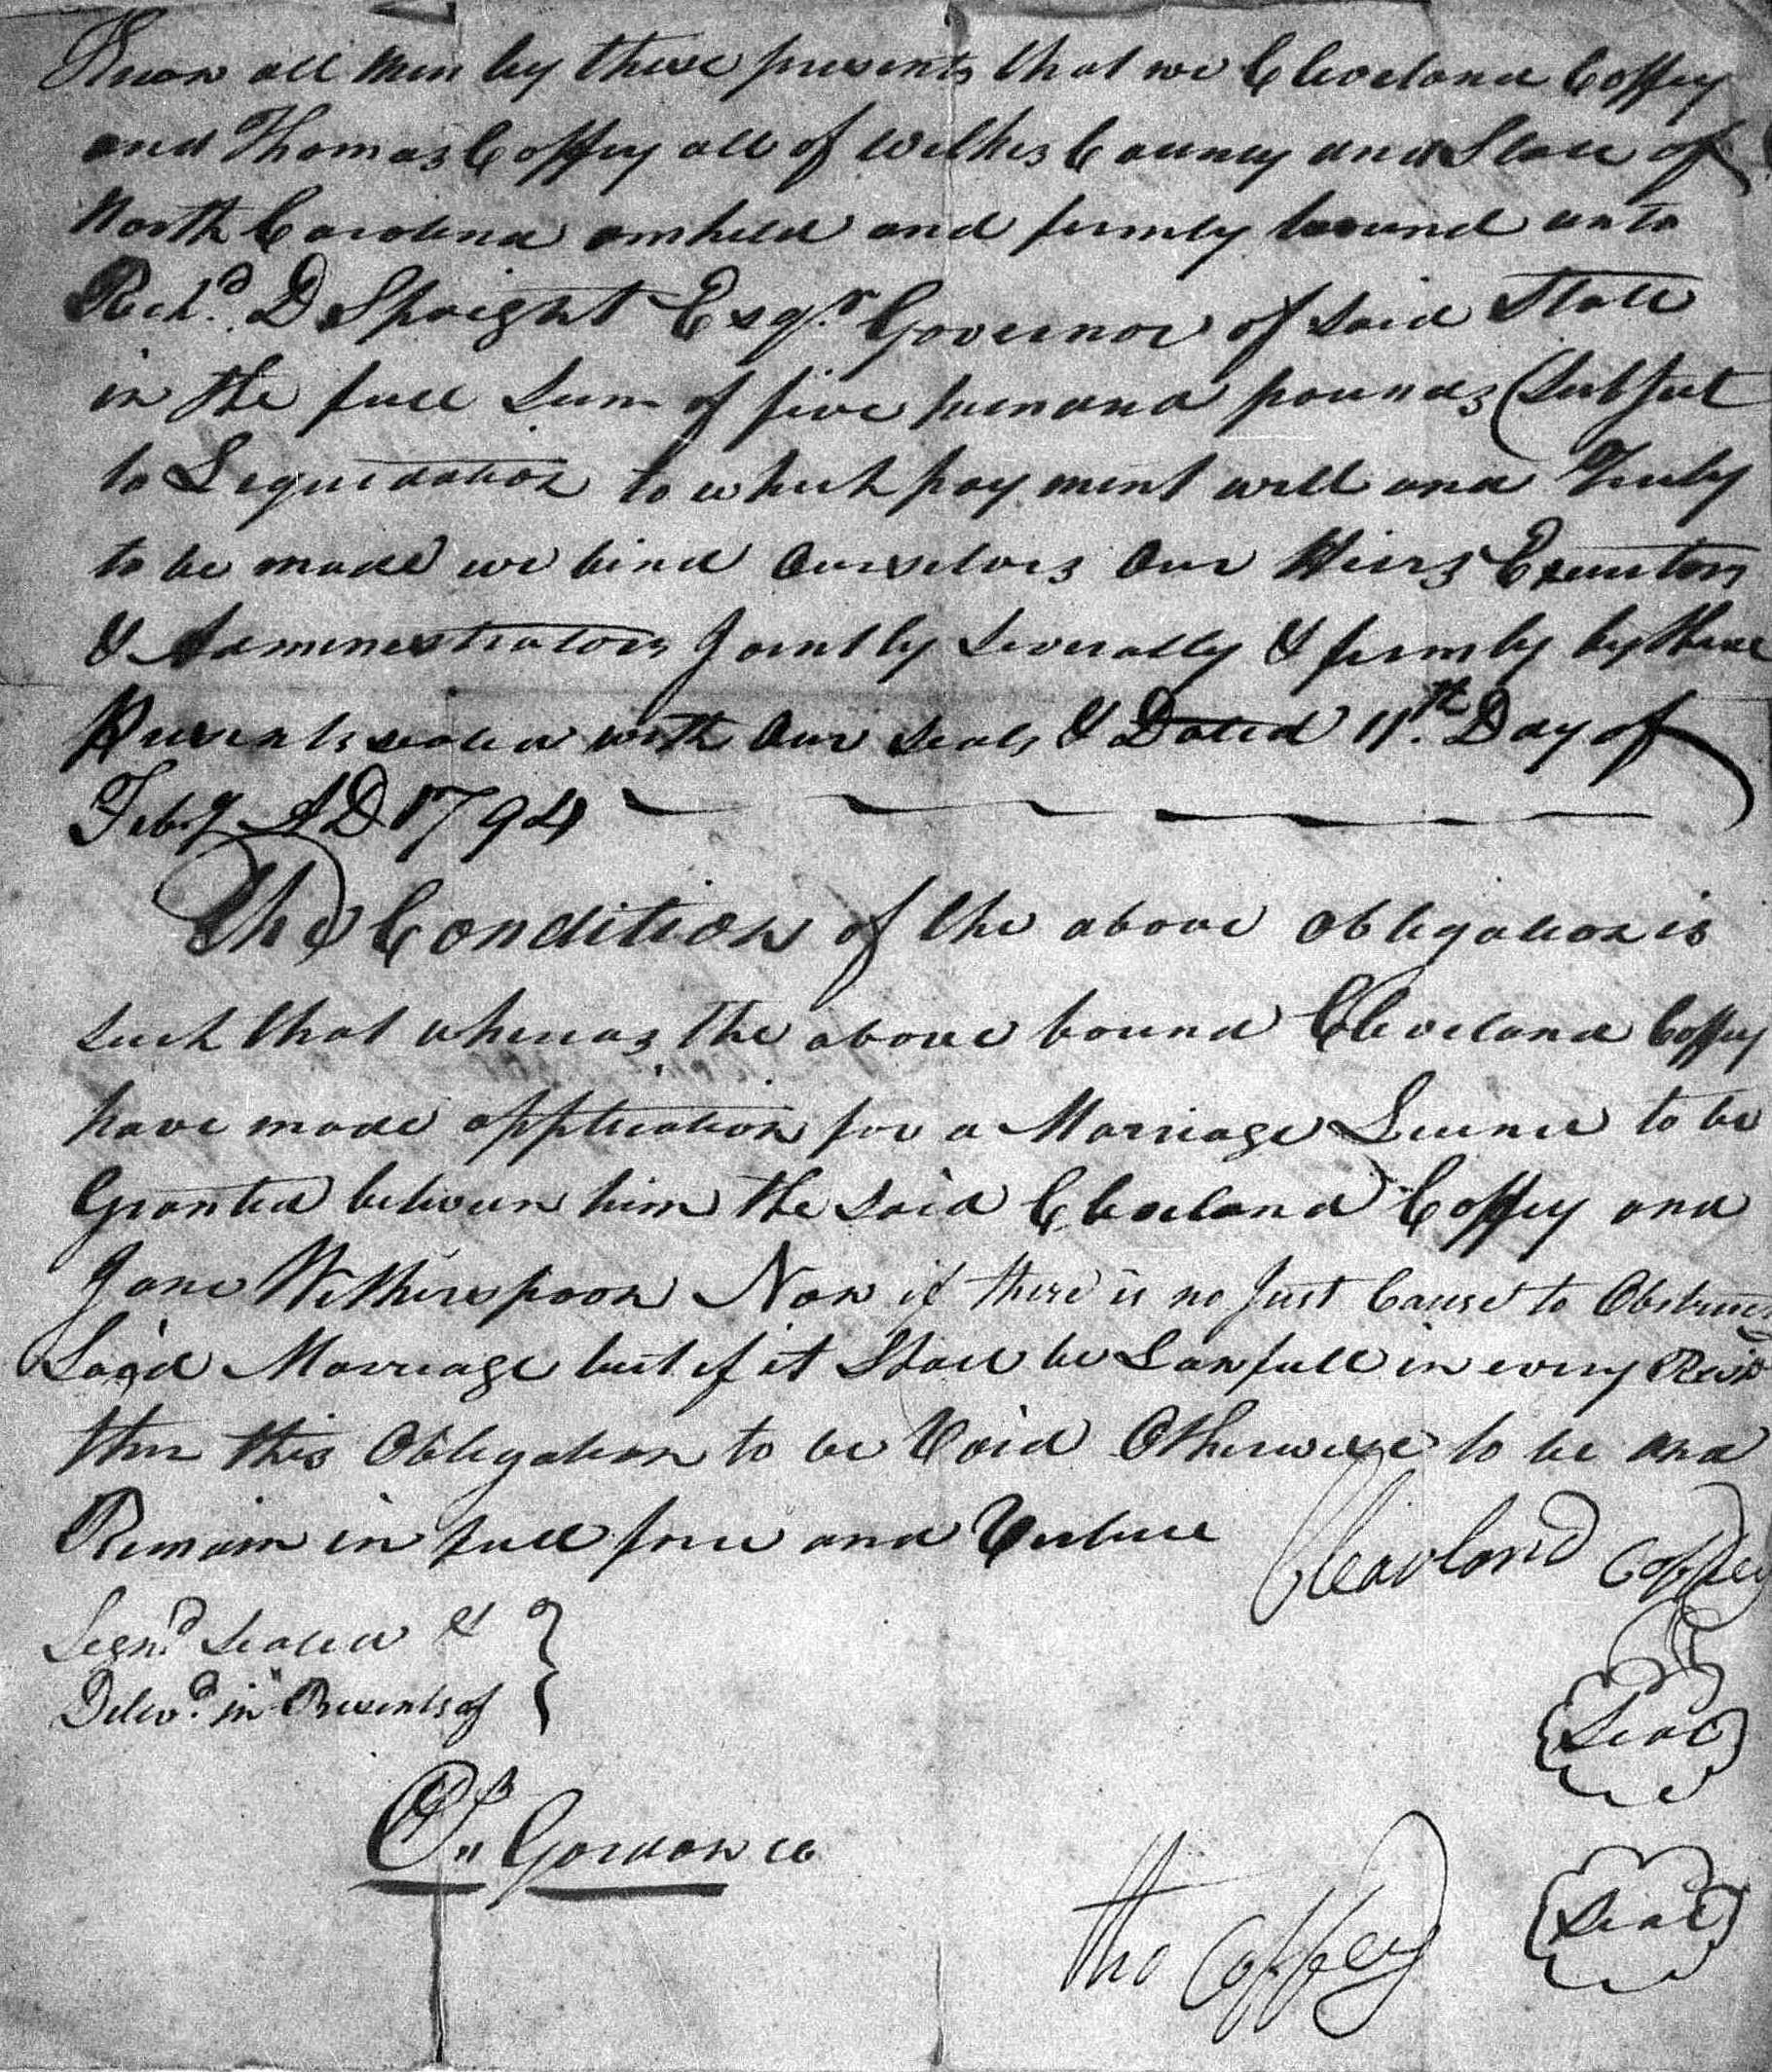 Know all men by these presents that we Cleveland Coffey
and Thomas Coffey all of Wilkes County and State of
North Carolina am held and firmly bound unto
Rich.d D Spaight Esqr. Governor of said State
in the full Sum of five hundred pounds (Subject
to Liquidation to which payment will and Truly
to be made we bind Ourselves Our Heirs Executors
& Administrators Jointly Severally & firmly by these
Presents sealed with Our seals & Dated 11th. Day of
Feby AD 1794
The Condition of the above Obligation is
such that whereas the above bound Cleveland Coffey
have made application for a Marriage Licence to be
Granted between him the said Cleveland Coffey and
Jane Witherspoon Now if there is no Just Cause to Obstruct
Said Marriage but if it Shall be Lawfull in every
then this Obligation to be Void Otherwise to be and
Remain in full force and Vertue
Cleavland Coffey
Sign.d Sealed &
Deliv.d in Presents of
Seal
Gordon CC
Tho Coffey
Seal